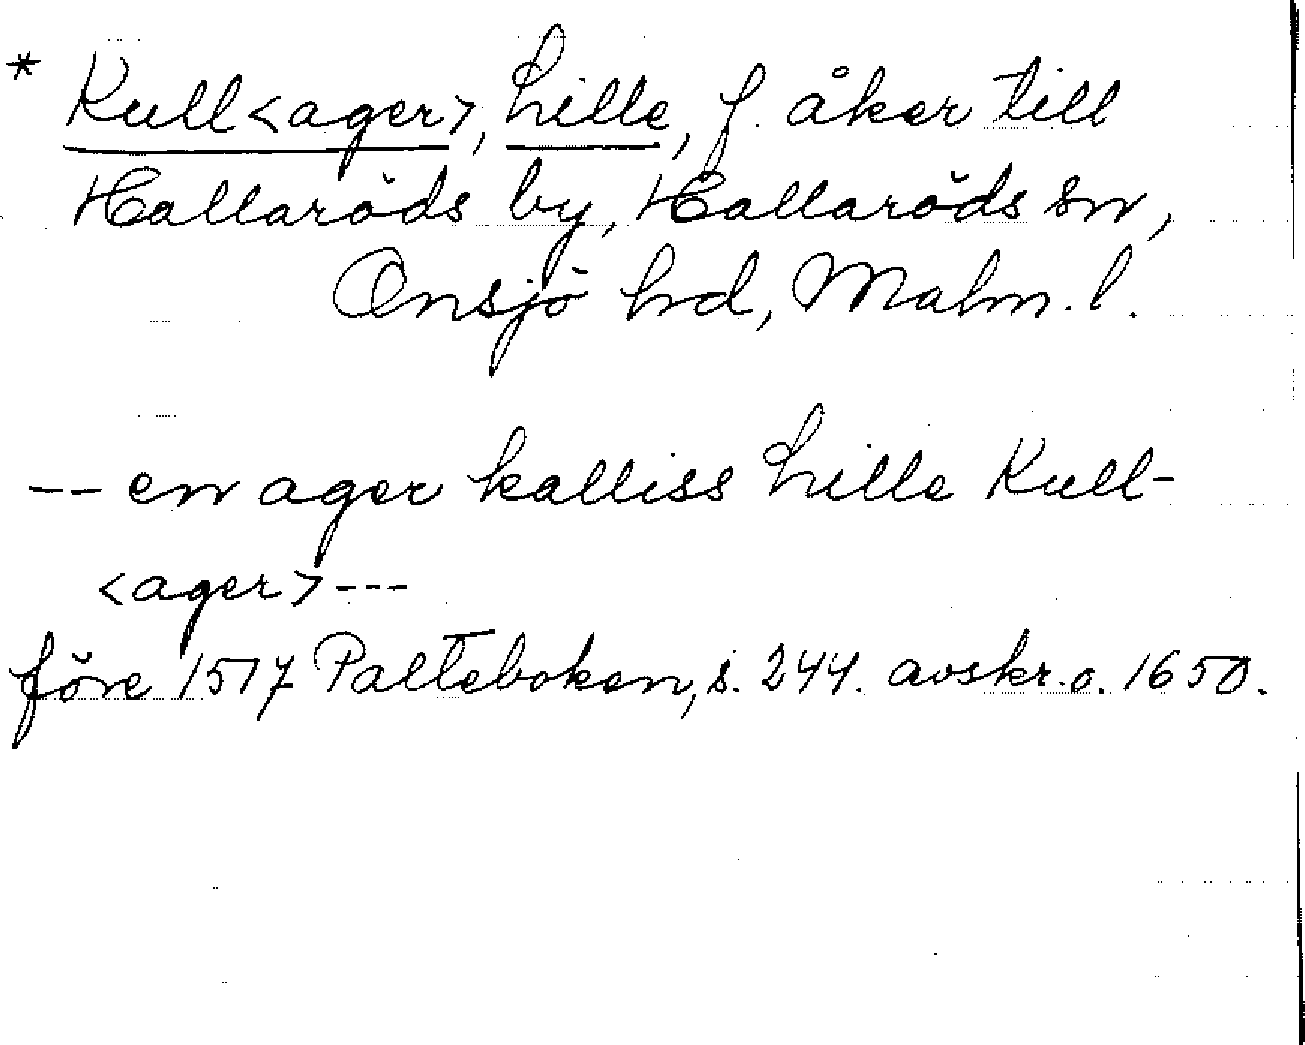 * Kull<ager>, Lille, f. åker till
Hallaröds by, Hallaröds sn,
Onsjö hd, Malm. l.
-- en ager kalliss Lille Kull-
<ager> ---
före 1517 Palteboken, s. 244. avskr. o. 1650.